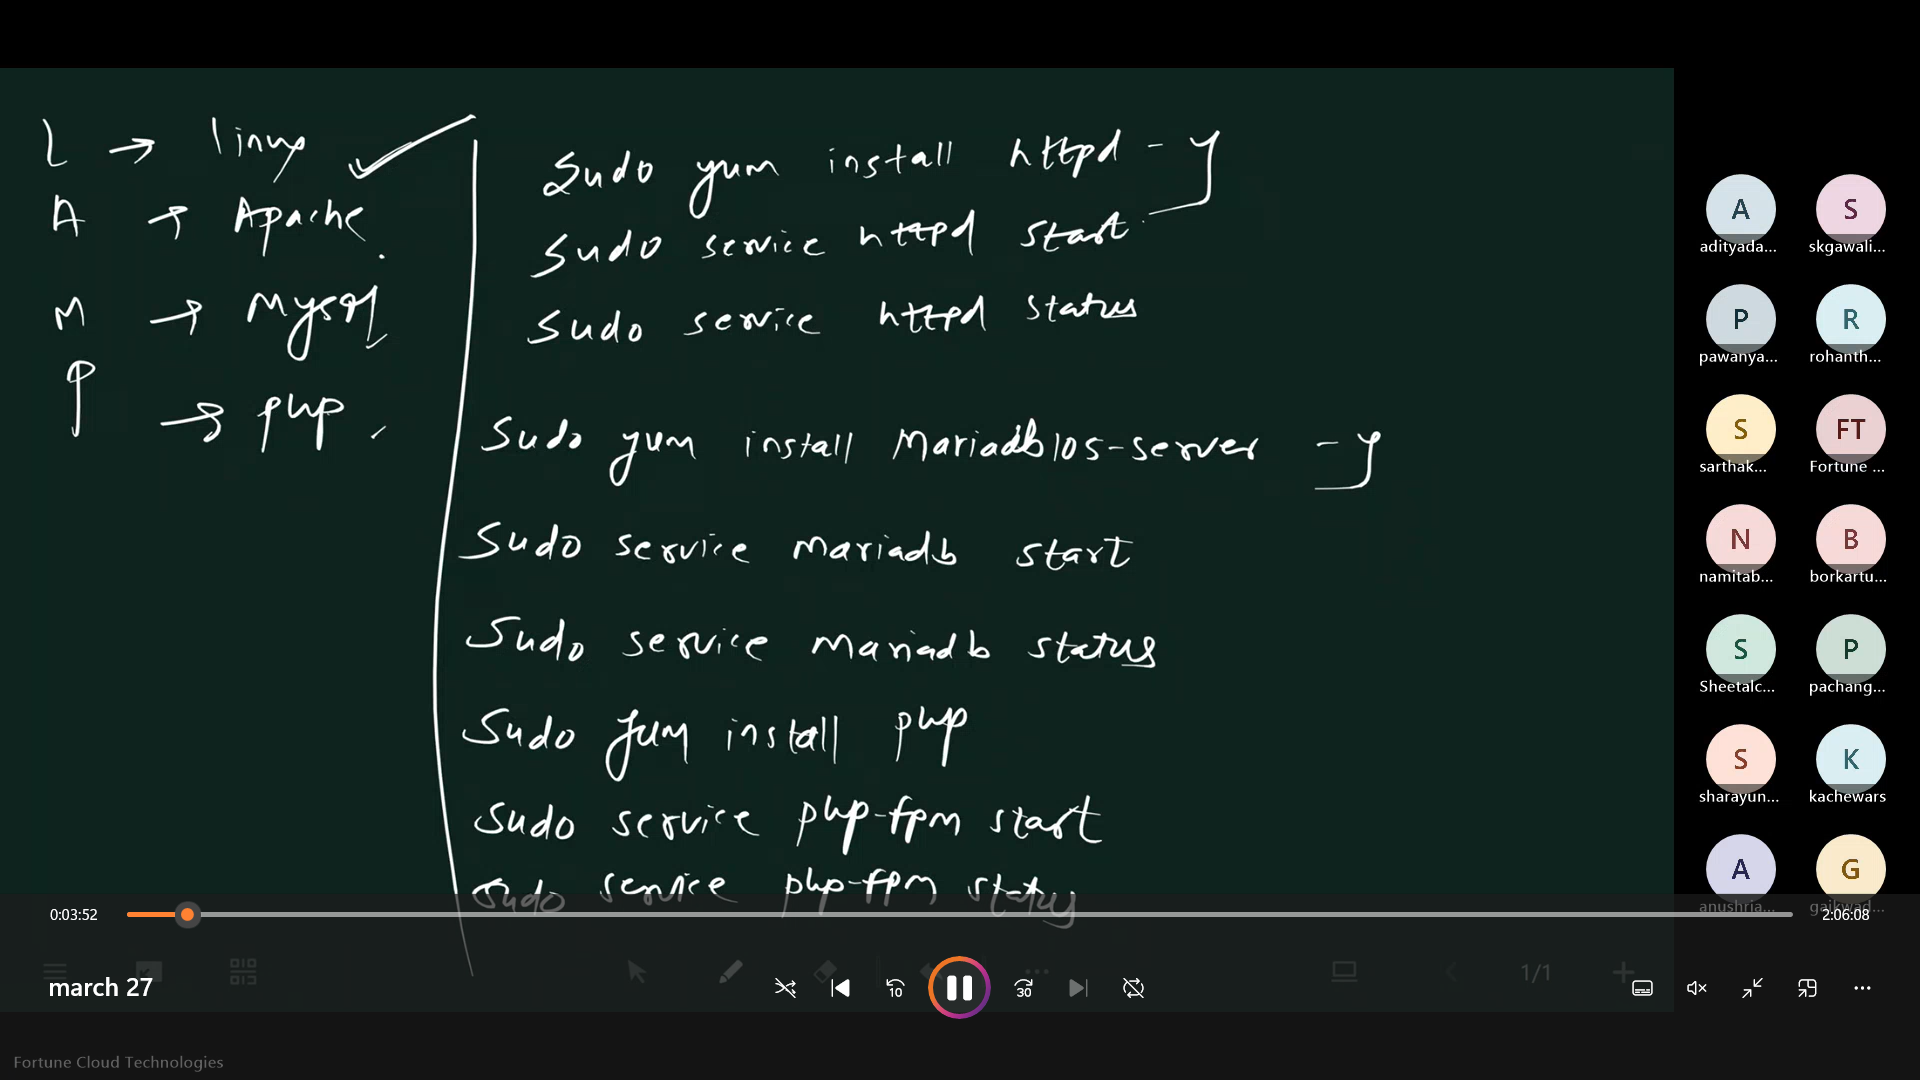 L → linux
A → Apache
M → Mysql
P → php
Sudo yum install httpd -y
Sudo service httpd start
Sudo service httpd status
Sudo yum install Mariadb105-server -y
Sudo service mariadb start
Sudo service mariadb status
Sudo yum install php
Sudo service php-fpm start
Sudo service php-fpm status
A
adityada...
S
skgawali...
P
pawanya...
R
rohanth...
S
sarthak...
FT
Fortune ...
N
namitab...
B
borkartu...
S
Sheetalc...
P
pachang...
S
sharayun...
K
kachewars
A
anushria...
G
gaikwad...
0:03:52
2:06:08
march 27
10
30
1/1
Fortune Cloud Technologies